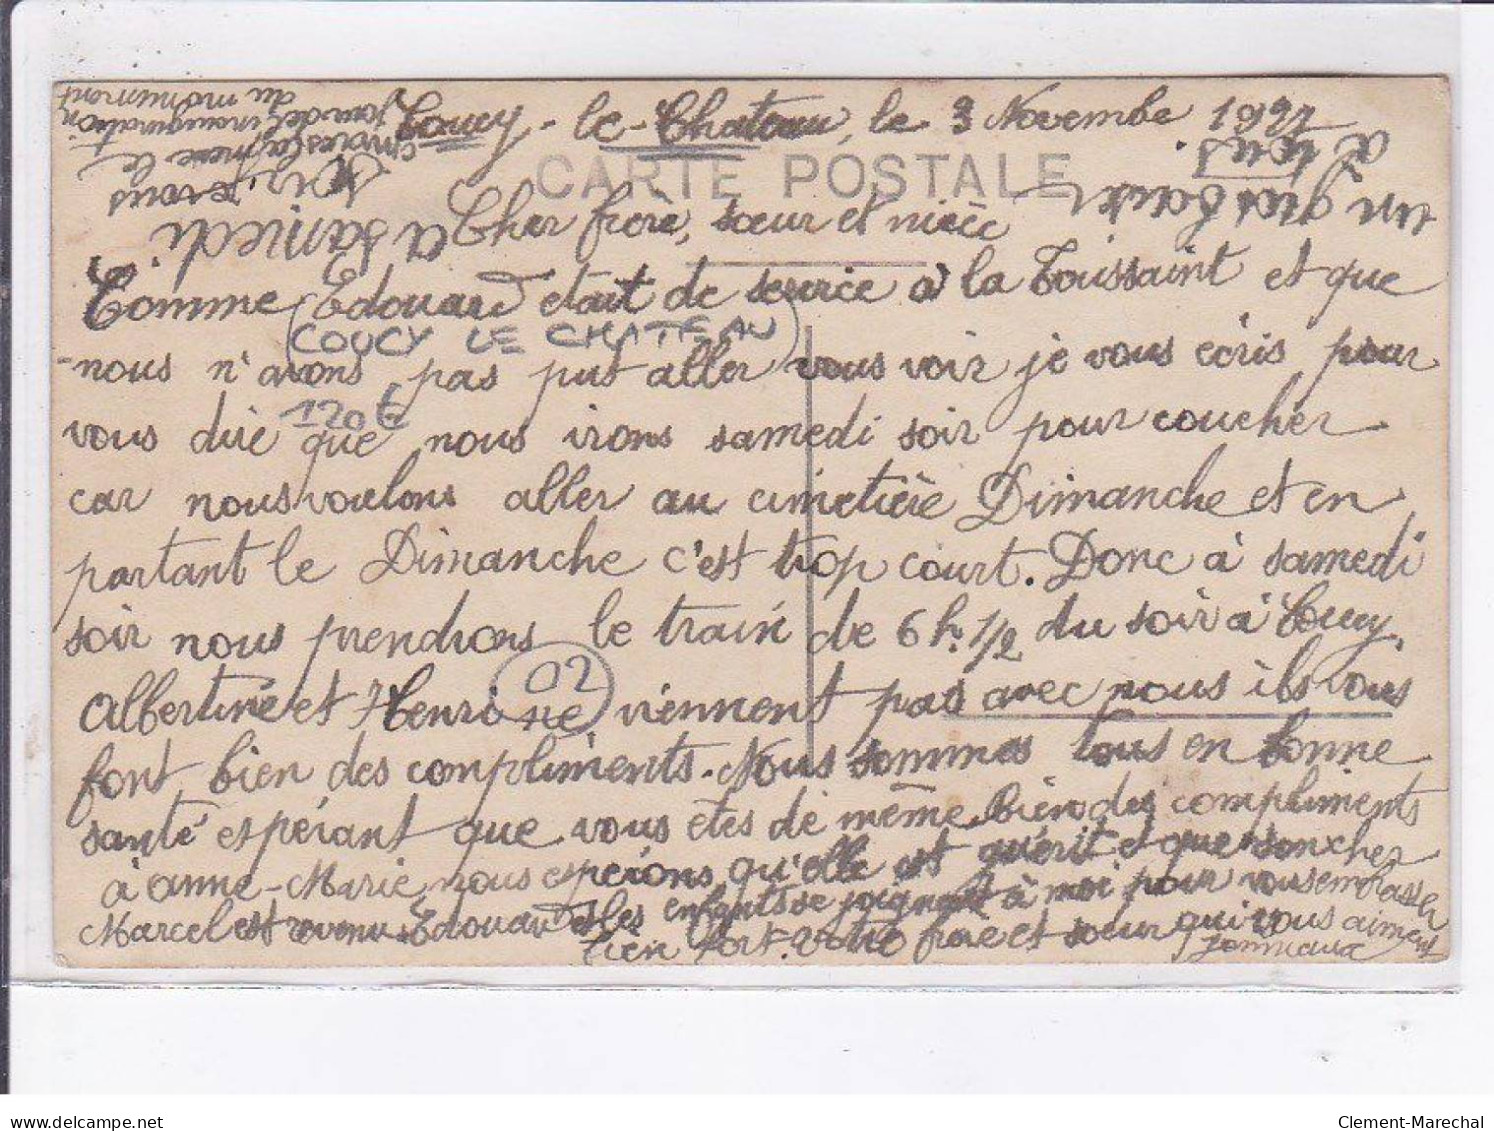 Coucy-le-Chateau, le 3 Novembe 1921
CARTE POSTALE
Cher frère, sœur et nièce
Comme Edouard etait de service à la Toussaint et que
COUCY LE CHATEAU
nous n'avons pas put aller vous voir je vous ecris pour
120€
vous dire que nous irons samedi soir pour coucher
car nous voulons aller au cimetière Dimanche et en
partant le Dimanche c'est trop court. Donc à samedi
soir nous prendrons le train de 6h 1/2 du soir à Coucy.
02
Albertine et Henri ne viennent pas avec nous ils vous
font bien des compliments. Nous sommes tous en bonne
santé espérant que vous etes de même bien des compliments
à Anne-Marie nous esperons qu'elle est guérit et que son cher
Marcel est revenu Edouard et les enfants se joignent à moi pour vous embrasser
bien fort. Votre frère et sœur qui vous aiment
un gros baiser
à tous
à samedi
soir je vous
enverrais la mère le
jour de l'inauguration
du monument
delcampe.net
Clement-Marechal